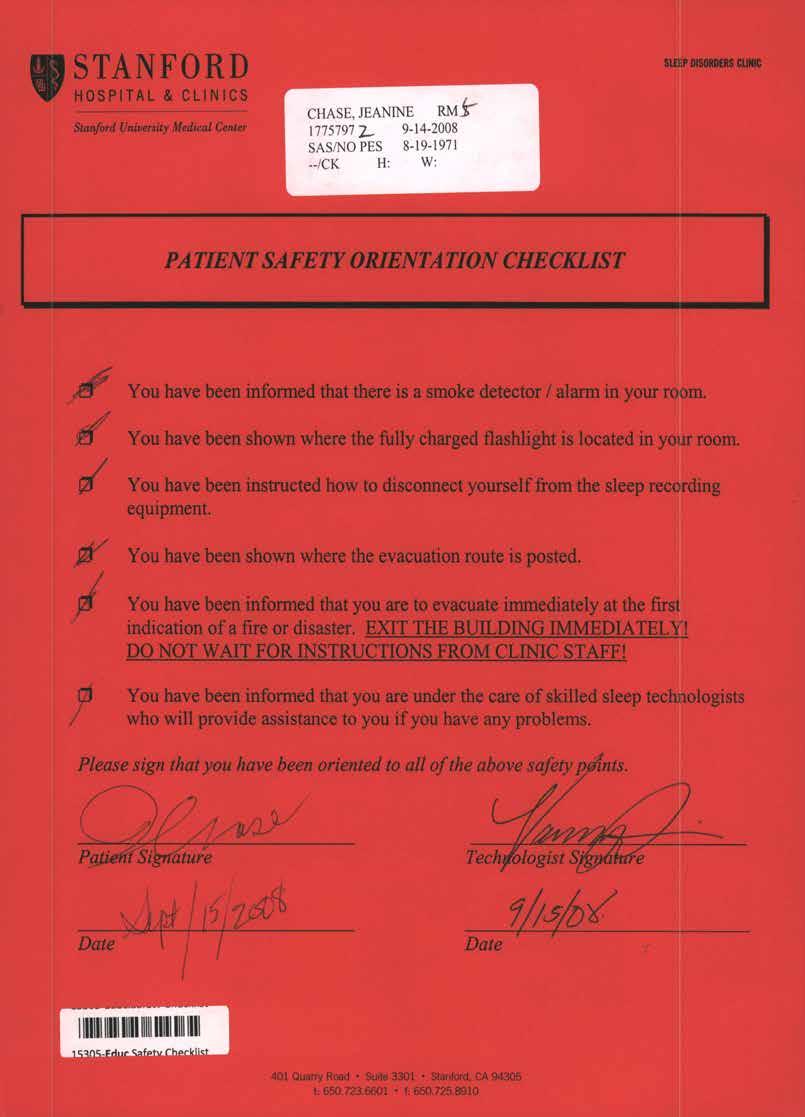 STANFORD
HOSPITAL & CLINICS
Stanford University Medical Center
SLEEP DISORDERS CLINIC
CHASE, JEANINE RM 5
1775797 2 9-14-2008
SAS/NO PES 8-19-1971
--/CK H: W:
PATIENT SAFETY ORIENTATION CHECKLIST
You have been informed that there is a smoke detector / alarm in your room.
You have been shown where the fully charged flashlight is located in your room.
You have been instructed how to disconnect yourself from the sleep recording
equipment.
You have been shown where the evacuation route is posted.
You have been informed that you are to evacuate immediately at the first
indication of a fire or disaster. EXIT THE BUILDING IMMEDIATELY!
DO NOT WAIT FOR INSTRUCTIONS FROM CLINIC STAFF!
You have been informed that you are under the care of skilled sleep technologists
who will provide assistance to you if you have any problems.
Please sign that you have been oriented to all of the above safety points.
J Chase
Patient Signature
Technologist Signature
Sept/15/2008
9/15/08
Date
Date
15305-Educ Safety Checklist
401 Quarry Road • Suite 3301 • Stanford, CA 94305
t: 650.723.6601 • f: 650.725.8910